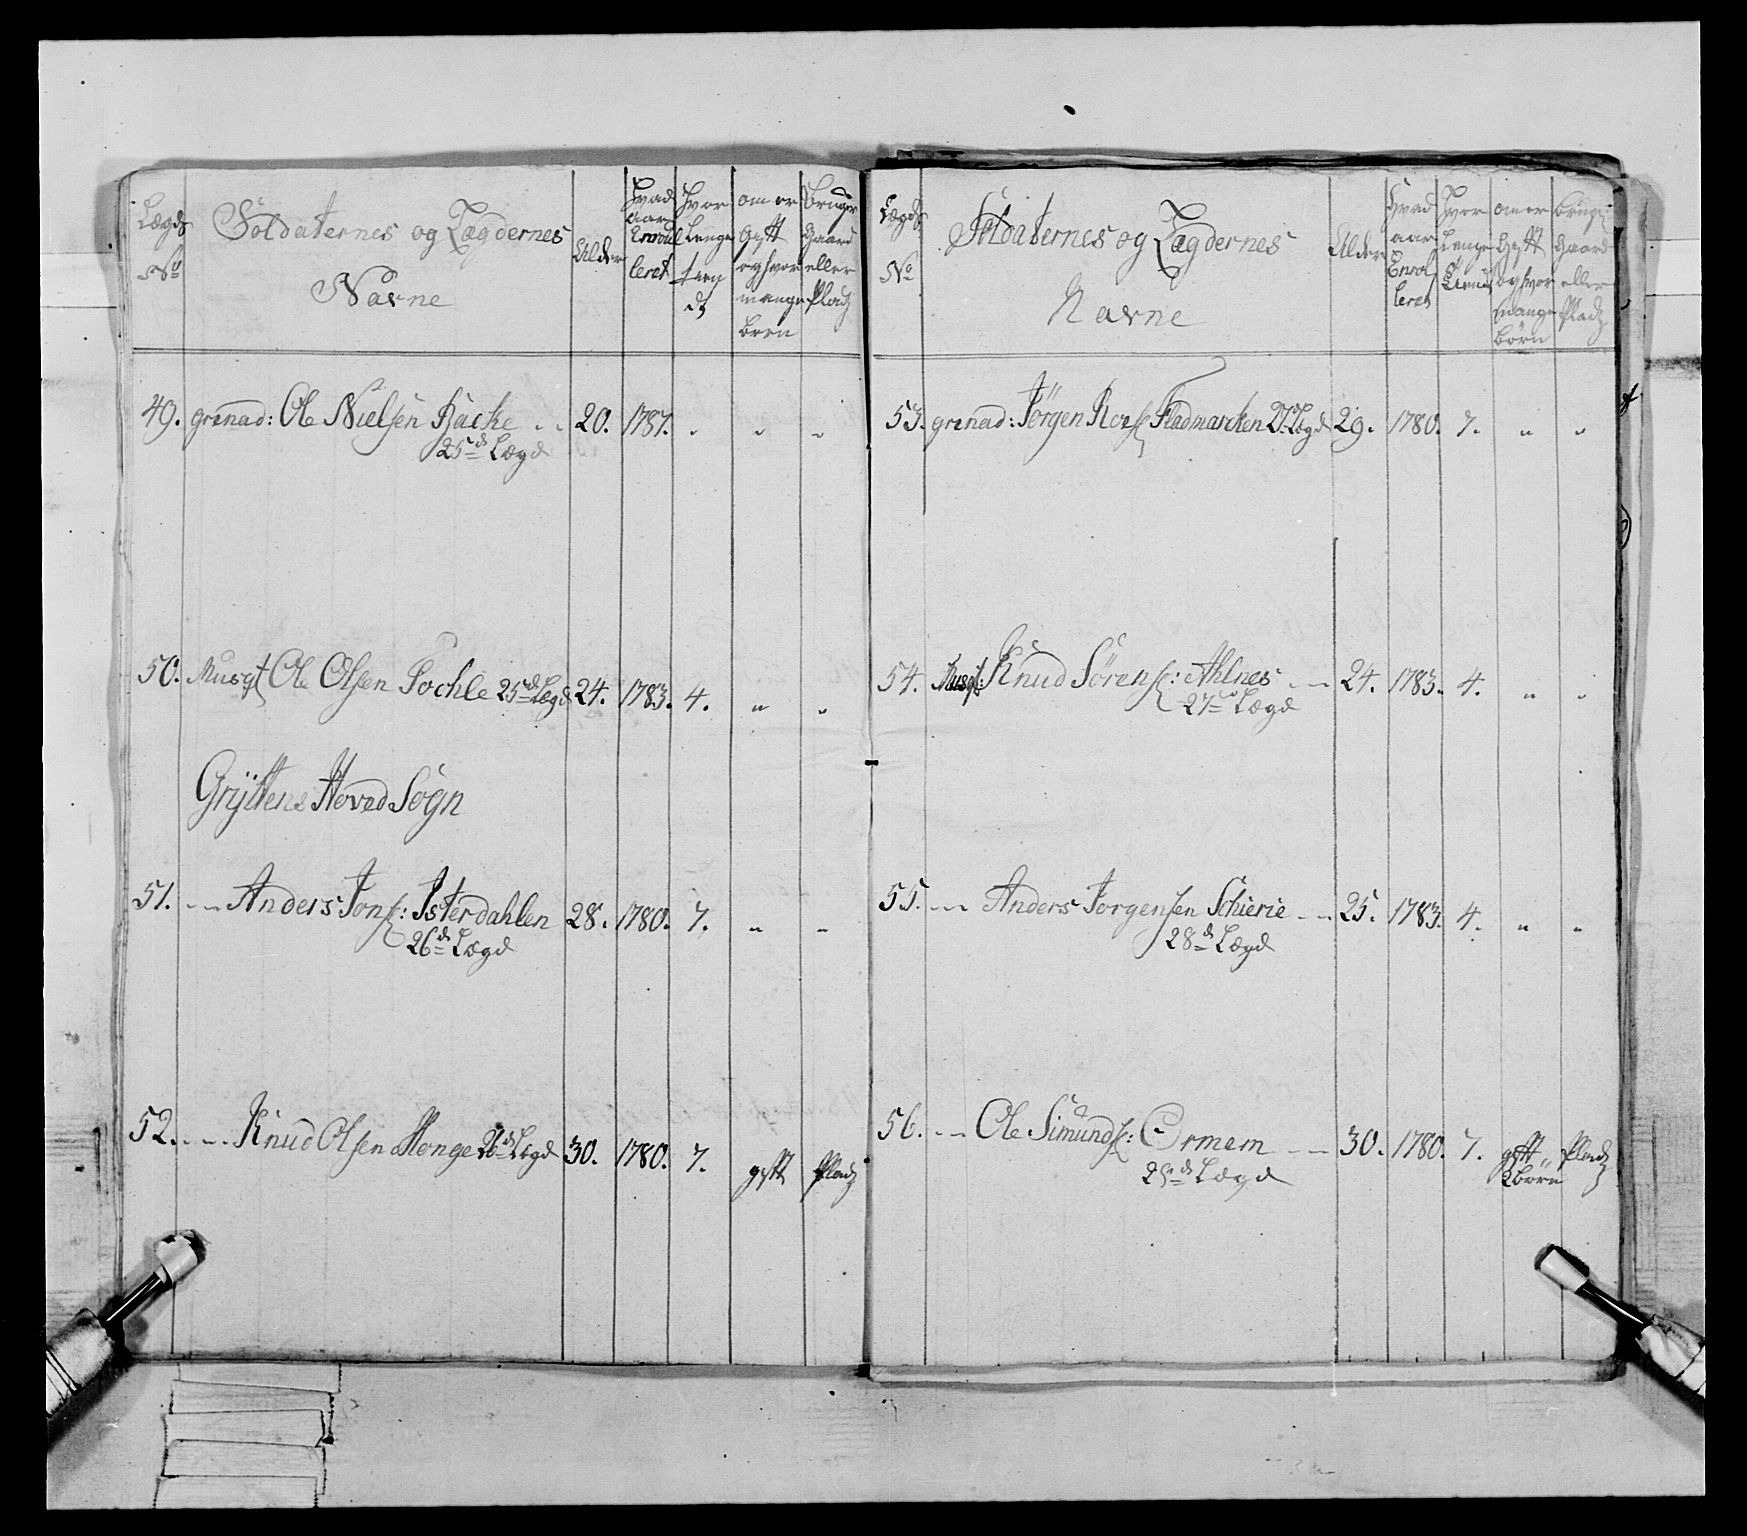 Lægds No
Soldaternes og Lægdernes Navne
Alder
Hvad aar Enroul leret
Hvor Lenge tien dt
om er Gift og hvor mange børn
Bruger Gaard eller Pladz
49. grenad: Ole Nielsen Backe 20. 1787. " " "
25de Lægd
50. Musqt Ole Olsen Sochle 25de Lægd 24. 1783. 4. " "
Gryttens Hoved Sogn
51. Anders Jons: Isterdahlen 28. 1780. 7. " "
26de Lægd
52. Knud Olsen Monge 26de Lægd 30. 1780. 7. gift Pladz
Lægds No
Soldaternes og Lægdernes Navne
Alder
Hvad aar Enrol leret
Hvor Lenge
om er Gift og hvor mange børn
brug: Gaard eller Pladz
53. grenad: Jørgen Fladmarcken 27de Lægd 29. 1780. 7. " "
54. Musqt: Knud Sørens: Ahlnes 24. 1783. 4. " "
27de Lægd
55. Anders Jorgensen Schierie 25. 1783. 4. " "
28de Lægd
56. Ole Simunds: Ormem 30. 1780. 7. gift Pladz
Lægd børn